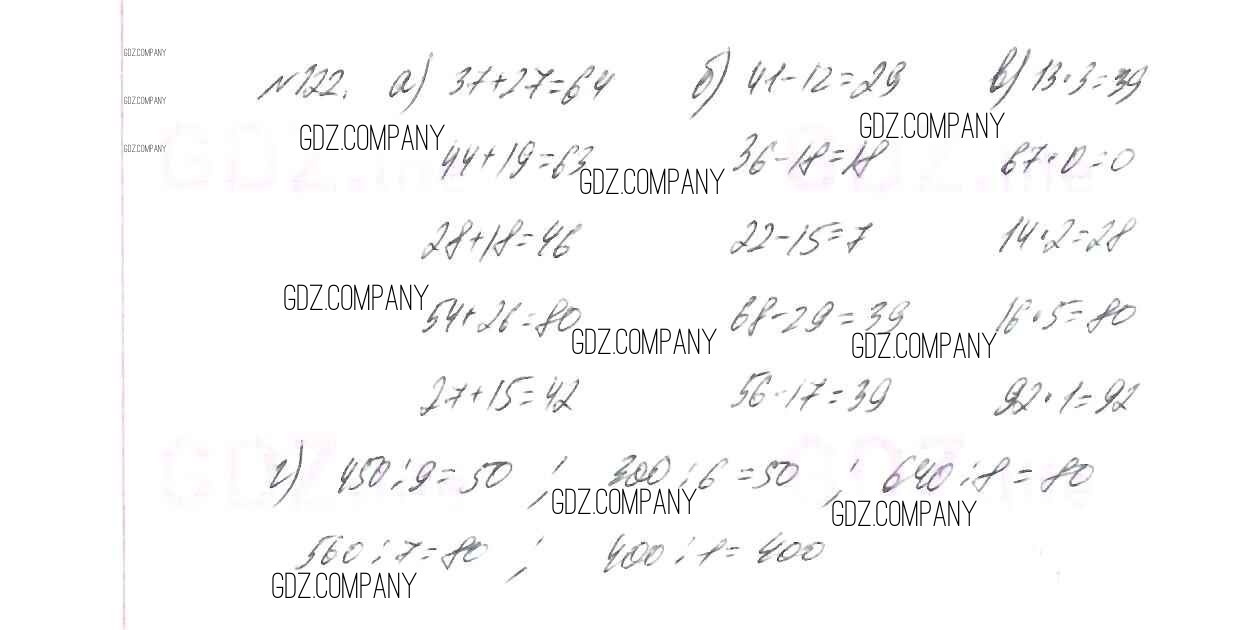 GDZ.COMPANY
№122. а) 37+27=64 б) 41-12=29 в) 13·3=39
GDZ.COMPANY
GDZ.COMPANY GDZ.COMPANY
GDZ.COMPANY 44+19=63 36-18=18 67·0=0
GDZ.COMPANY
28+18=46 22-15=7 14·2=28
GDZ.COMPANY
54+26=80 68-29=39 16·5=80
GDZ.COMPANY GDZ.COMPANY
27+15=42 56-17=39 92·1=92
г) 450:9=50 ; 300:6=50 ; 640:8=80
GDZ.COMPANY GDZ.COMPANY
560:7=80 ; 400:1=400
GDZ.COMPANY